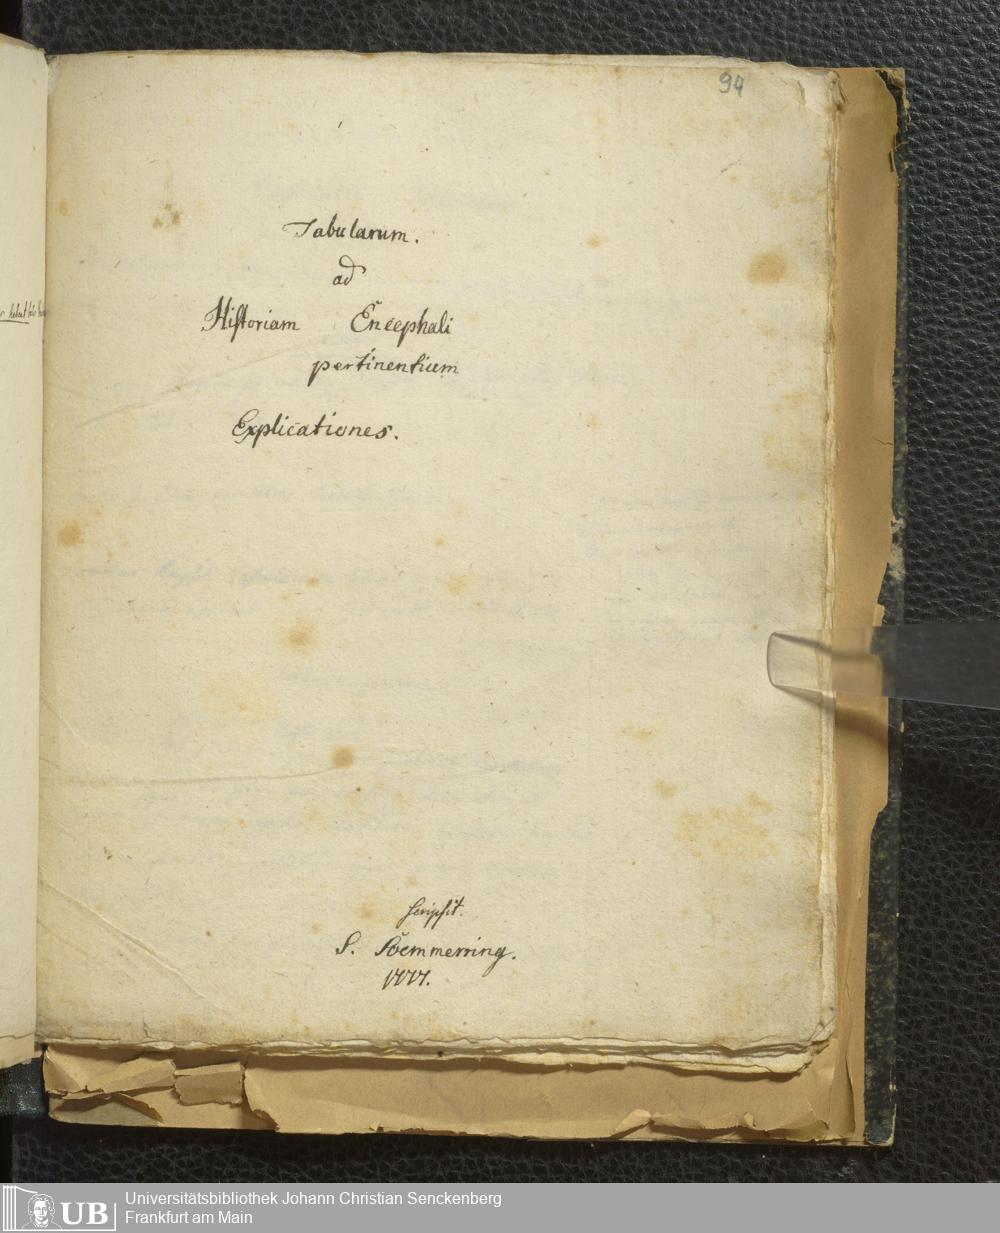 94
Tabularum.
ad
Historiam Encephali
pertinentium
Explicationes.
scripsit.
S. Soemmerring.
1777.
UB
Universitätsbibliothek Johann Christian Senckenberg
Frankfurt am Main